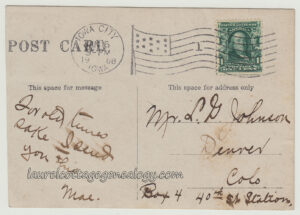 IOWA CITY
1908
IOWA
1
POST CARD
This space for message
This space for address only
For old times
sake I send
you
Mae.
Mr. L. G. Johnson
Denver
Colo.
Box 4 40th St Station.
laurelcottagegenealogy.com